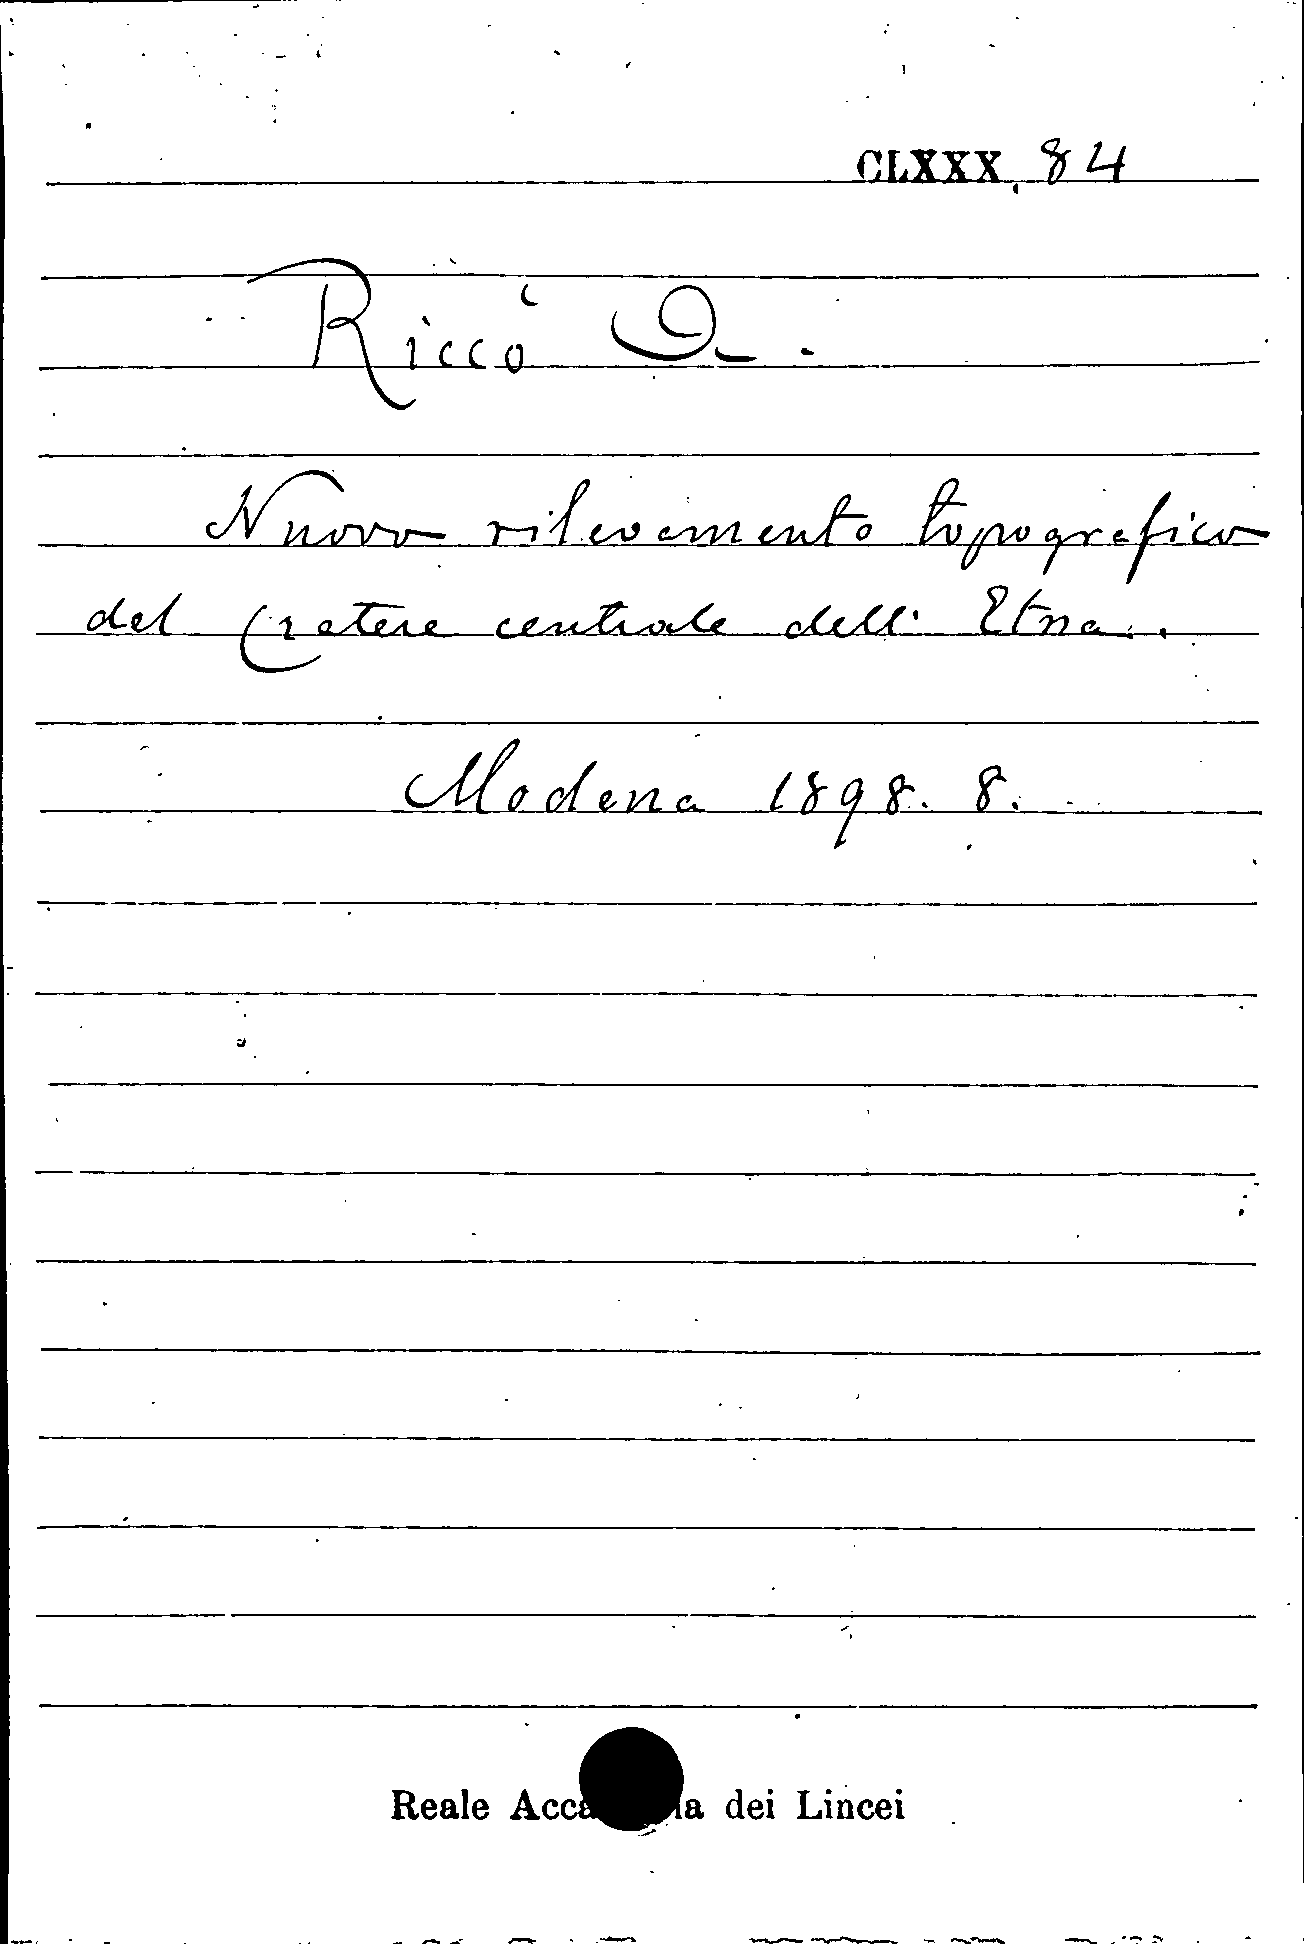 CLXXX, 84
Riccò A.
Nuovo rilevamento topografico
del Cratere centrale dell'Etna.
Modena 1898. 8.
Reale Acca ia dei Lincei